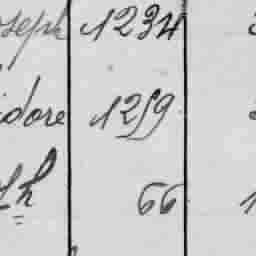 oseph 1234
idore 1259
th 66 1